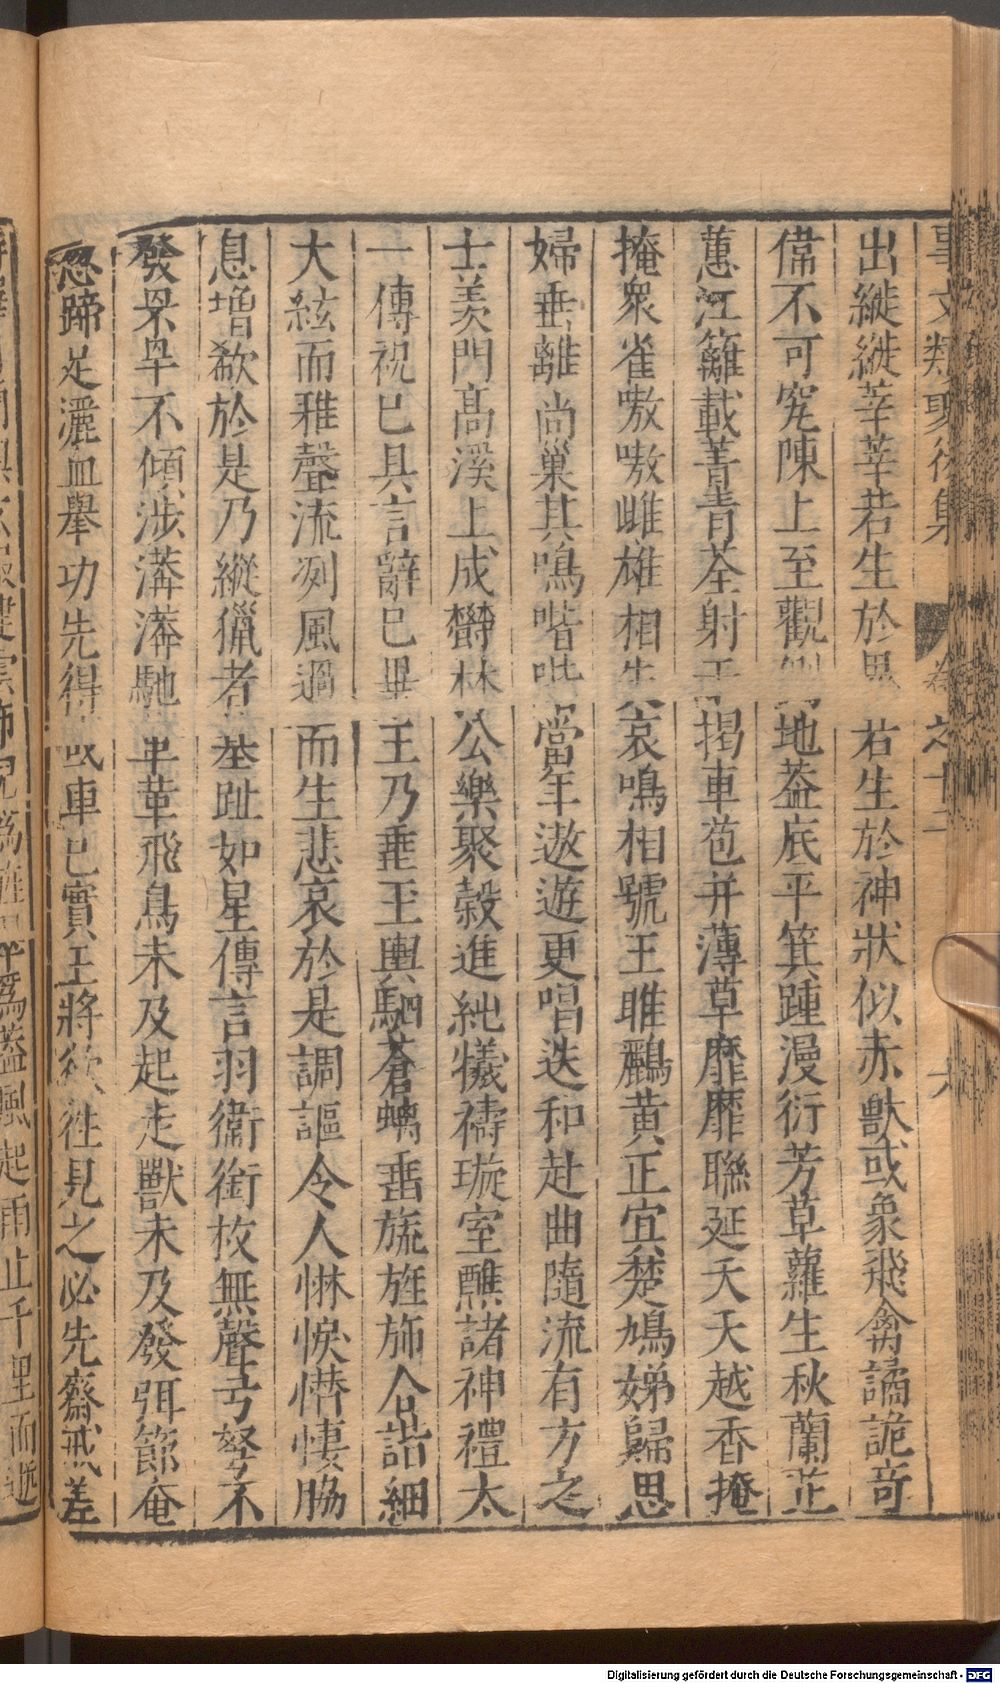 事文類聚後集 卷之十二 六
出縰縰莘莘若生於鬼若生於神狀似赤獸或象飛禽譎詭奇
偉不可究陳上至觀側地葢底平箕踵漫衍芳草蘿生秋蘭茝
蕙江籬載菁青荃射干揭車苞并薄草靡靡聯延夭夭越香掩
掩衆雀嗷嗷雌雄相失哀鳴相號王雎鸝黄正宜楚鳩姊歸思
婦垂離尚巢其鳴喈喈當年遨遊更唱迭和赴曲隨流有方之
士羙門高溪上成欝林公樂聚穀進純犧禱璇室醮諸神禮太
一傳祝巳具言辭巳畢王乃乗玉輿駟蒼螭垂旒旌斾合諧紬
大絃而雅聲流冽風過而生悲哀於是調謳令人惏悷憯悽脇
息增欷於是乃縱獵者基趾如星傳言羽衞銜枚無聲弓弩不
發罘䍐不傾涉漭漭馳苹華飛鳥未及起走獸未及發弭節奄
忽蹄足灑血舉功先得獲車巳實王將欲徃見之必先齋戒差